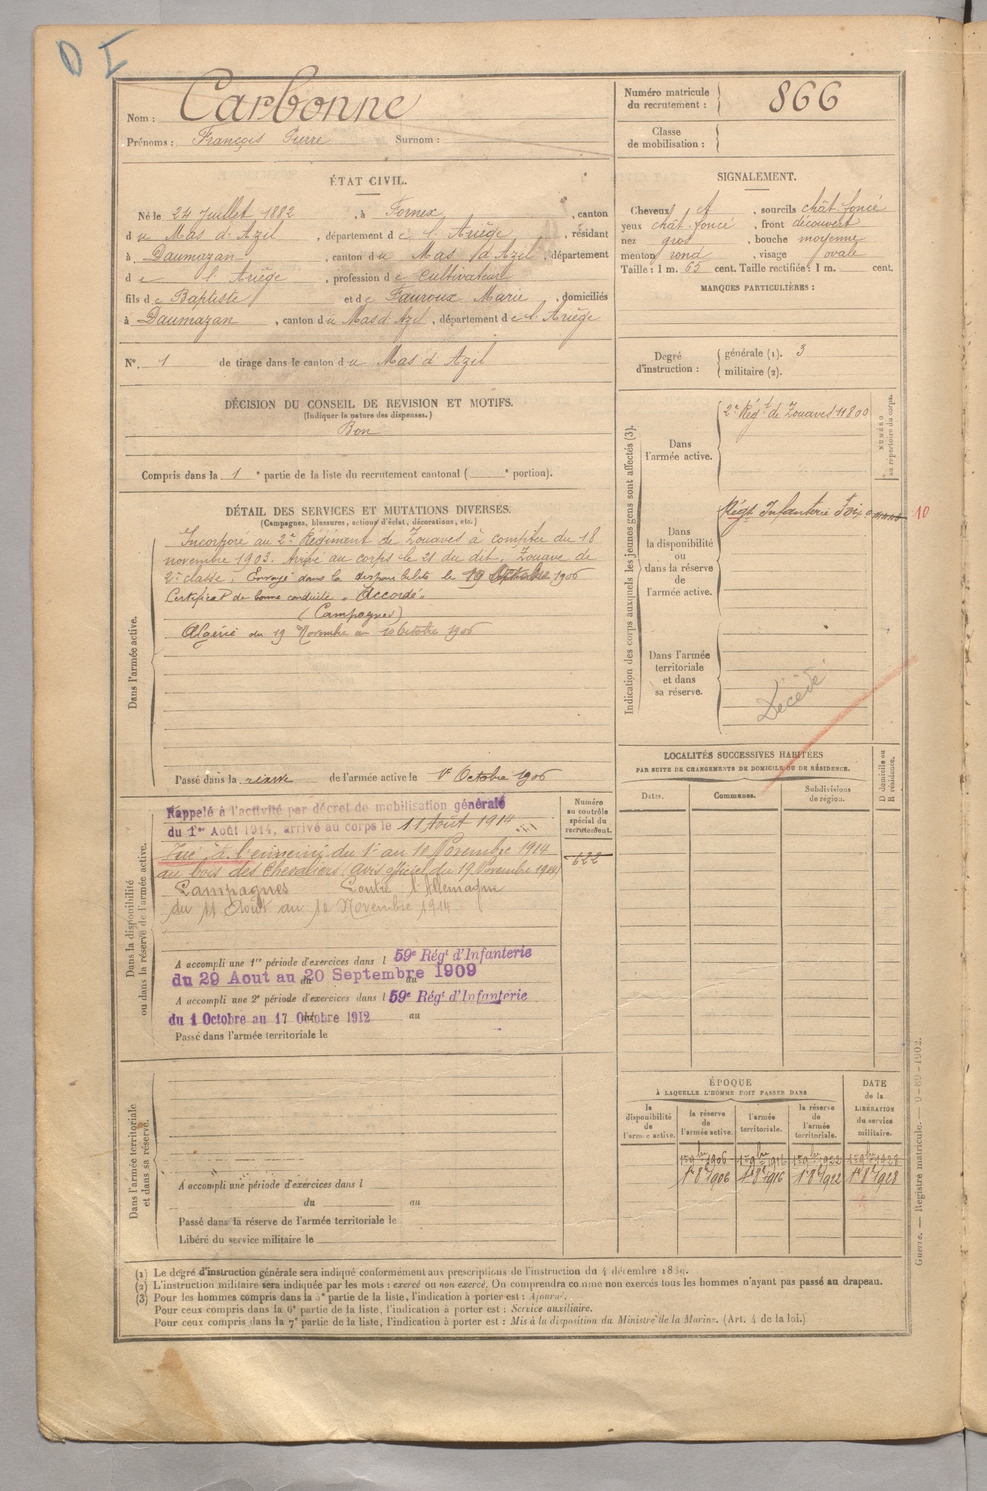 D I
Nom : Carbonne
Prénoms : François Pierre Surnom :
Numéro matricule du recrutement : 866
Classe de mobilisation :
ÉTAT CIVIL.
Né le 24 Juillet 1882, à Fornex, canton
du Mas d'Azil, département de l'Ariège, résidant
à Daumazan, canton du Mas d'Azil, département
de l'Ariège, profession de Cultivateur
fils de Baptiste et de Fauroux Marie, domiciliés
à Daumazan, canton du Mas d'Azil, département de l'Ariège
N° 1 de tirage dans le canton du Mas d'Azil
SIGNALEMENT.
Cheveux et, sourcils chât. foncé
yeux chât. foncé, front découvert
nez gros, bouche moyenne
menton rond, visage ovale
Taille : 1 m. 65 cent. Taille rectifiée : 1 m. cent.
MARQUES PARTICULIÈRES :
Degré d'instruction : générale (1). 3
militaire (2).
DÉCISION DU CONSEIL DE REVISION ET MOTIFS.
(Indiquer la nature des dispenses.)
Bon
Compris dans la 1e partie de la liste du recrutement cantonal ( e portion).
DÉTAIL DES SERVICES ET MUTATIONS DIVERSES.
(Campagnes, blessures, actions d'éclat, décorations, etc.)
Dans l'armée active.
Incorporé au 2e Régiment de Zouaves à compter du 18
novembre 1903. Arrivé au corps le 21 du dit. Zouave de
2e classe. Envoyé dans la disponibilité le 19 1906
Certificat de bonne conduite "Accordé"
(Campagnes)
Algérie du 19 Novembre au Octobre 1906
Passé dans la réserve de l'armée active le 1er Octobre 1906
Indication des corps auxquels les jeunes gens sont affectés (3).
NUMÉRO au répertoire du corps.
Dans l'armée active.
2e Régt de Zouaves 11800
Dans la disponibilité ou dans la réserve de l'armée active.
Régt Infanterie Foix 10
Dans l'armée territoriale et dans sa réserve.
Décédé
LOCALITÉS SUCCESSIVES HABITÉES
PAR SUITE DE CHANGEMENTS DE DOMICILE OU DE RÉSIDENCE.
Dates. Communes. Subdivisions de région. D domicile ou R résidence.
Dans la disponibilité ou dans la réserve de l'armée active.
Numéro au contrôle spécial du recrutement.
622
Rappelé à l'activité par décret de mobilisation générale
du 1er Août 1914, arrivé au corps le 11 Août 1914
Tué à l'ennemi du 1er au 10 Novembre 1914
au bois des Chevaliers (avis officiel du 19 Novembre 1914)
Campagnes Contre l'Allemagne
du 11 Août au 10 Novembre 1914
A accompli une 1re période d'exercices dans l 59e Régt d'Infanterie
du 29 Aout au 20 Septembre 1909
A accompli une 2e période d'exercices dans l 59e Régt d'Infanterie
du 1 Octobre au 17 Octobre 1912 au
Passé dans l'armée territoriale le
Dans l'armée territoriale et dans sa réserve.
A accompli une période d'exercices dans l
du au
Passé dans la réserve de l'armée territoriale le
Libéré du service militaire le
ÉPOQUE
À LAQUELLE L'HOMME DOIT PASSER DANS
la disponibilité de l'armée active. la réserve de l'armée active. l'armée territoriale. la réserve de l'armée territoriale. DATE de la LIBÉRATION du service militaire.
1er 9bre 1906 1er 9bre 1916 1er 9bre 1922 1er 9bre 1928
1er 8bre 1906 1er 8bre 1916 1er 8bre 1922 1er 8bre 1928
Guerre. — Registre matricule. —
(1) Le degré d'instruction générale sera indiqué conformément aux prescriptions de l'instruction du 4 décembre 1889.
(2) L'instruction militaire sera indiquée par les mots : exercé ou non exercé. On comprendra comme non exercés tous les hommes n'ayant pas passé au drapeau.
(3) Pour les hommes compris dans la 5e partie de la liste, l'indication à porter est : Ajourné.
Pour ceux compris dans la 6e partie de la liste, l'indication à porter est : Service auxiliaire.
Pour ceux compris dans la 7e partie de la liste, l'indication à porter est : Mis à la disposition du Ministre de la Marine. (Art. 4 de la loi.)